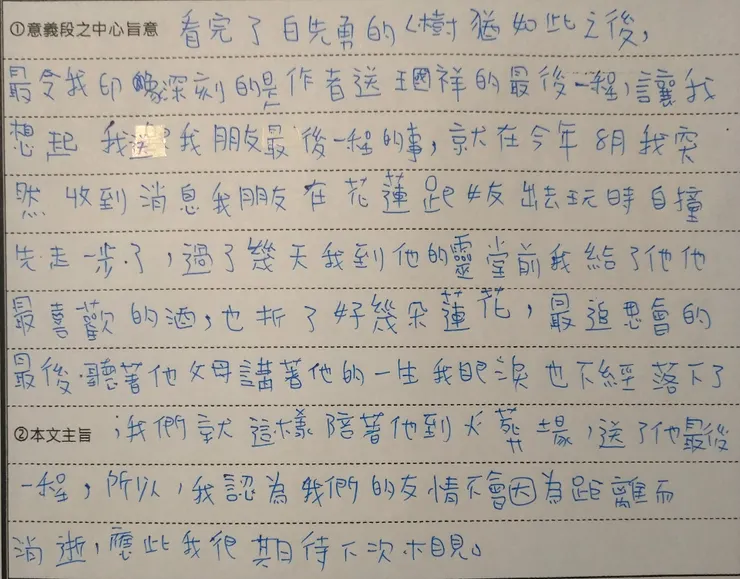 ①意義段之中心旨意 看完了白先勇的〈樹猶如此之後,
最令我印象深刻的是作者送王國祥的最後一程,讓我
想起我送我朋友最後一程的事,就在今年8月我突
然收到消息我朋友在花蓮跟女友出去玩時自撞
先走一步了,過了幾天我到他的靈堂前我給了他他
最喜歡的酒,也折了好幾朵蓮花,最追思會的
最後聽著他父母講著他的一生我眼淚也不經落下了
②本文主旨 ,我們就這樣陪著他到火葬場,送了他最後
一程,所以,我認為我們的友情不會因為距離而
消逝,應此我很期待下次相見。